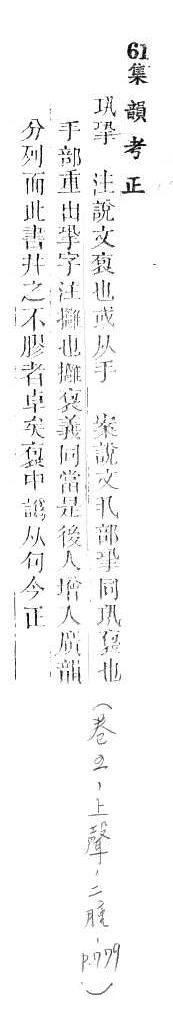 61集韻考正
巩㧬 注說文㧬也或从手 案說文丮部㧬同巩㧬也
手部重出㧬字注擁也擁裦義同當是後人增入廣韻
分列而此書幷之不膠者卓矣裦中譌从句今正
(卷五,上聲,二腫,p.779)